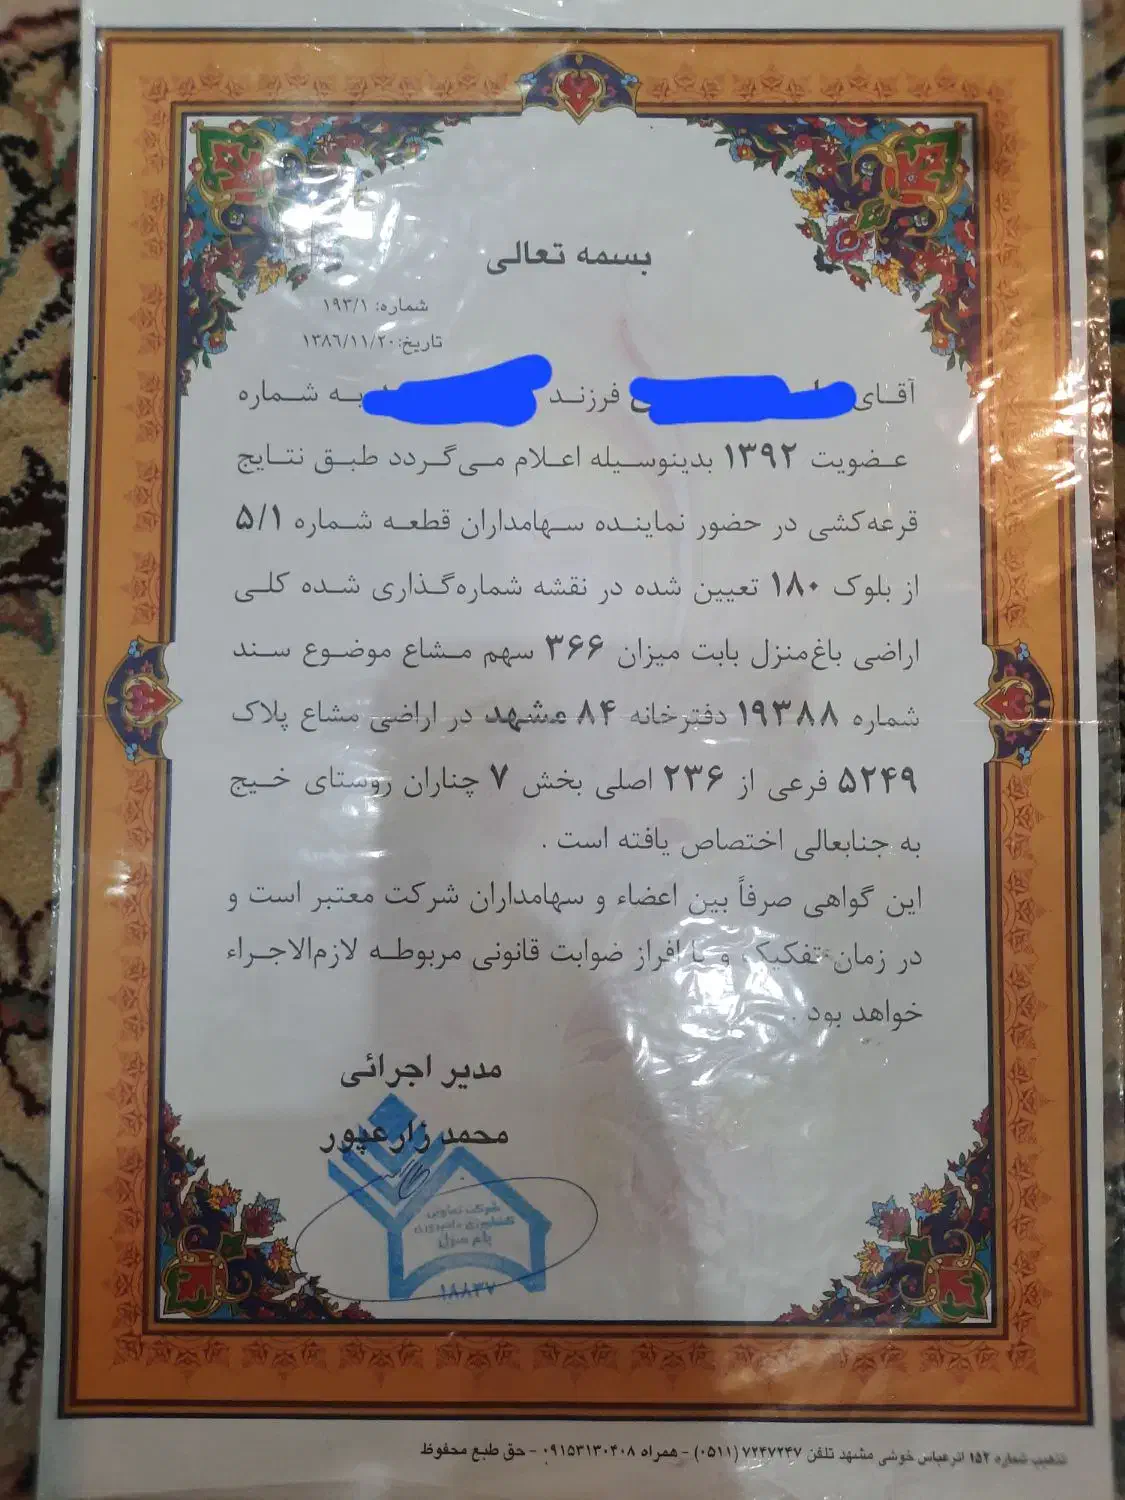 بسمه تعالی
شماره: ۱۹۳/۱
تاریخ: ۱۳۸۶/۱۱/۲۰
آقای فرزند به شماره
عضویت ۱۳۹۲ بدینوسیله اعلام می‌گردد طبق نتایج
قرعه‌کشی در حضور نماینده سهامداران قطعه شماره ۵/۱
از بلوک ۱۸۰ تعیین شده در نقشه شماره‌گذاری شده کلی
اراضی باغ‌منزل بابت میزان ۳۶۶ سهم مشاع موضوع سند
شماره ۱۹۳۸۸ دفترخانه ۸۴ مشهد در اراضی مشاع پلاک
۵۲۴۹ فرعی از ۲۳۶ اصلی بخش ۷ چناران روستای خیج
به جنابعالی اختصاص یافته است .
این گواهی صرفاً بین اعضاء و سهامداران شرکت معتبر است و
در زمان تفکیک و یا افراز ضوابت قانونی مربوطه لازم‌الاجراء
خواهد بود .
مدیر اجرائی
محمد زارعپور
شرکت تعاونی
کشاورزی دامپروری
۱۸۸۳۷
تذهیب شماره ۱۵۲ اثرعباس خوشی مشهد تلفن ۷۲۴۷۲۴۷ (۰۵۱۱) - همراه ۰۹۱۵۳۱۳۰۴۰۸ - حق طبع محفوظ